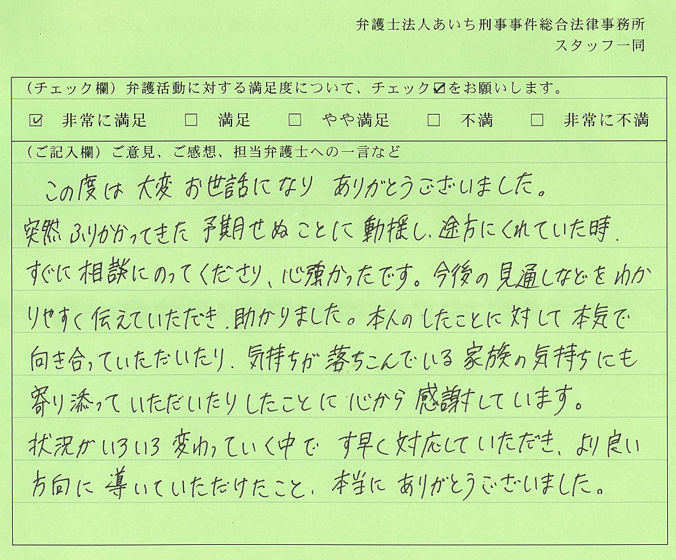 弁護士法人あいち刑事事件総合法律事務所
スタッフ一同
（チェック欄）弁護活動に対する満足度について、チェック☑をお願いします。
☑ 非常に満足 □ 満足 □ やや満足 □ 不満 □ 非常に不満
（ご記入欄）ご意見、ご感想、担当弁護士への一言など
この度は 大変 お世話になり ありがとうございました。
突然 ふりかかってきた 予期せぬ ことに 動揺し、途方にくれていた時、
すぐに 相談にのってくださり、心強かったです。今後の 見通しなどを わか
りやすく 伝えていただき、助かりました。本人の したことに 対して 本気で
向き合っていただいたり、気持ちが 落ちこんでいる 家族の気持ちにも
寄り添って いただいたり したことに 心から 感謝しています。
状況がいろいろ 変わっていく中で す早く 対応していただき、より良い
方向に 導いていただけたこと、本当に ありがとうございました。